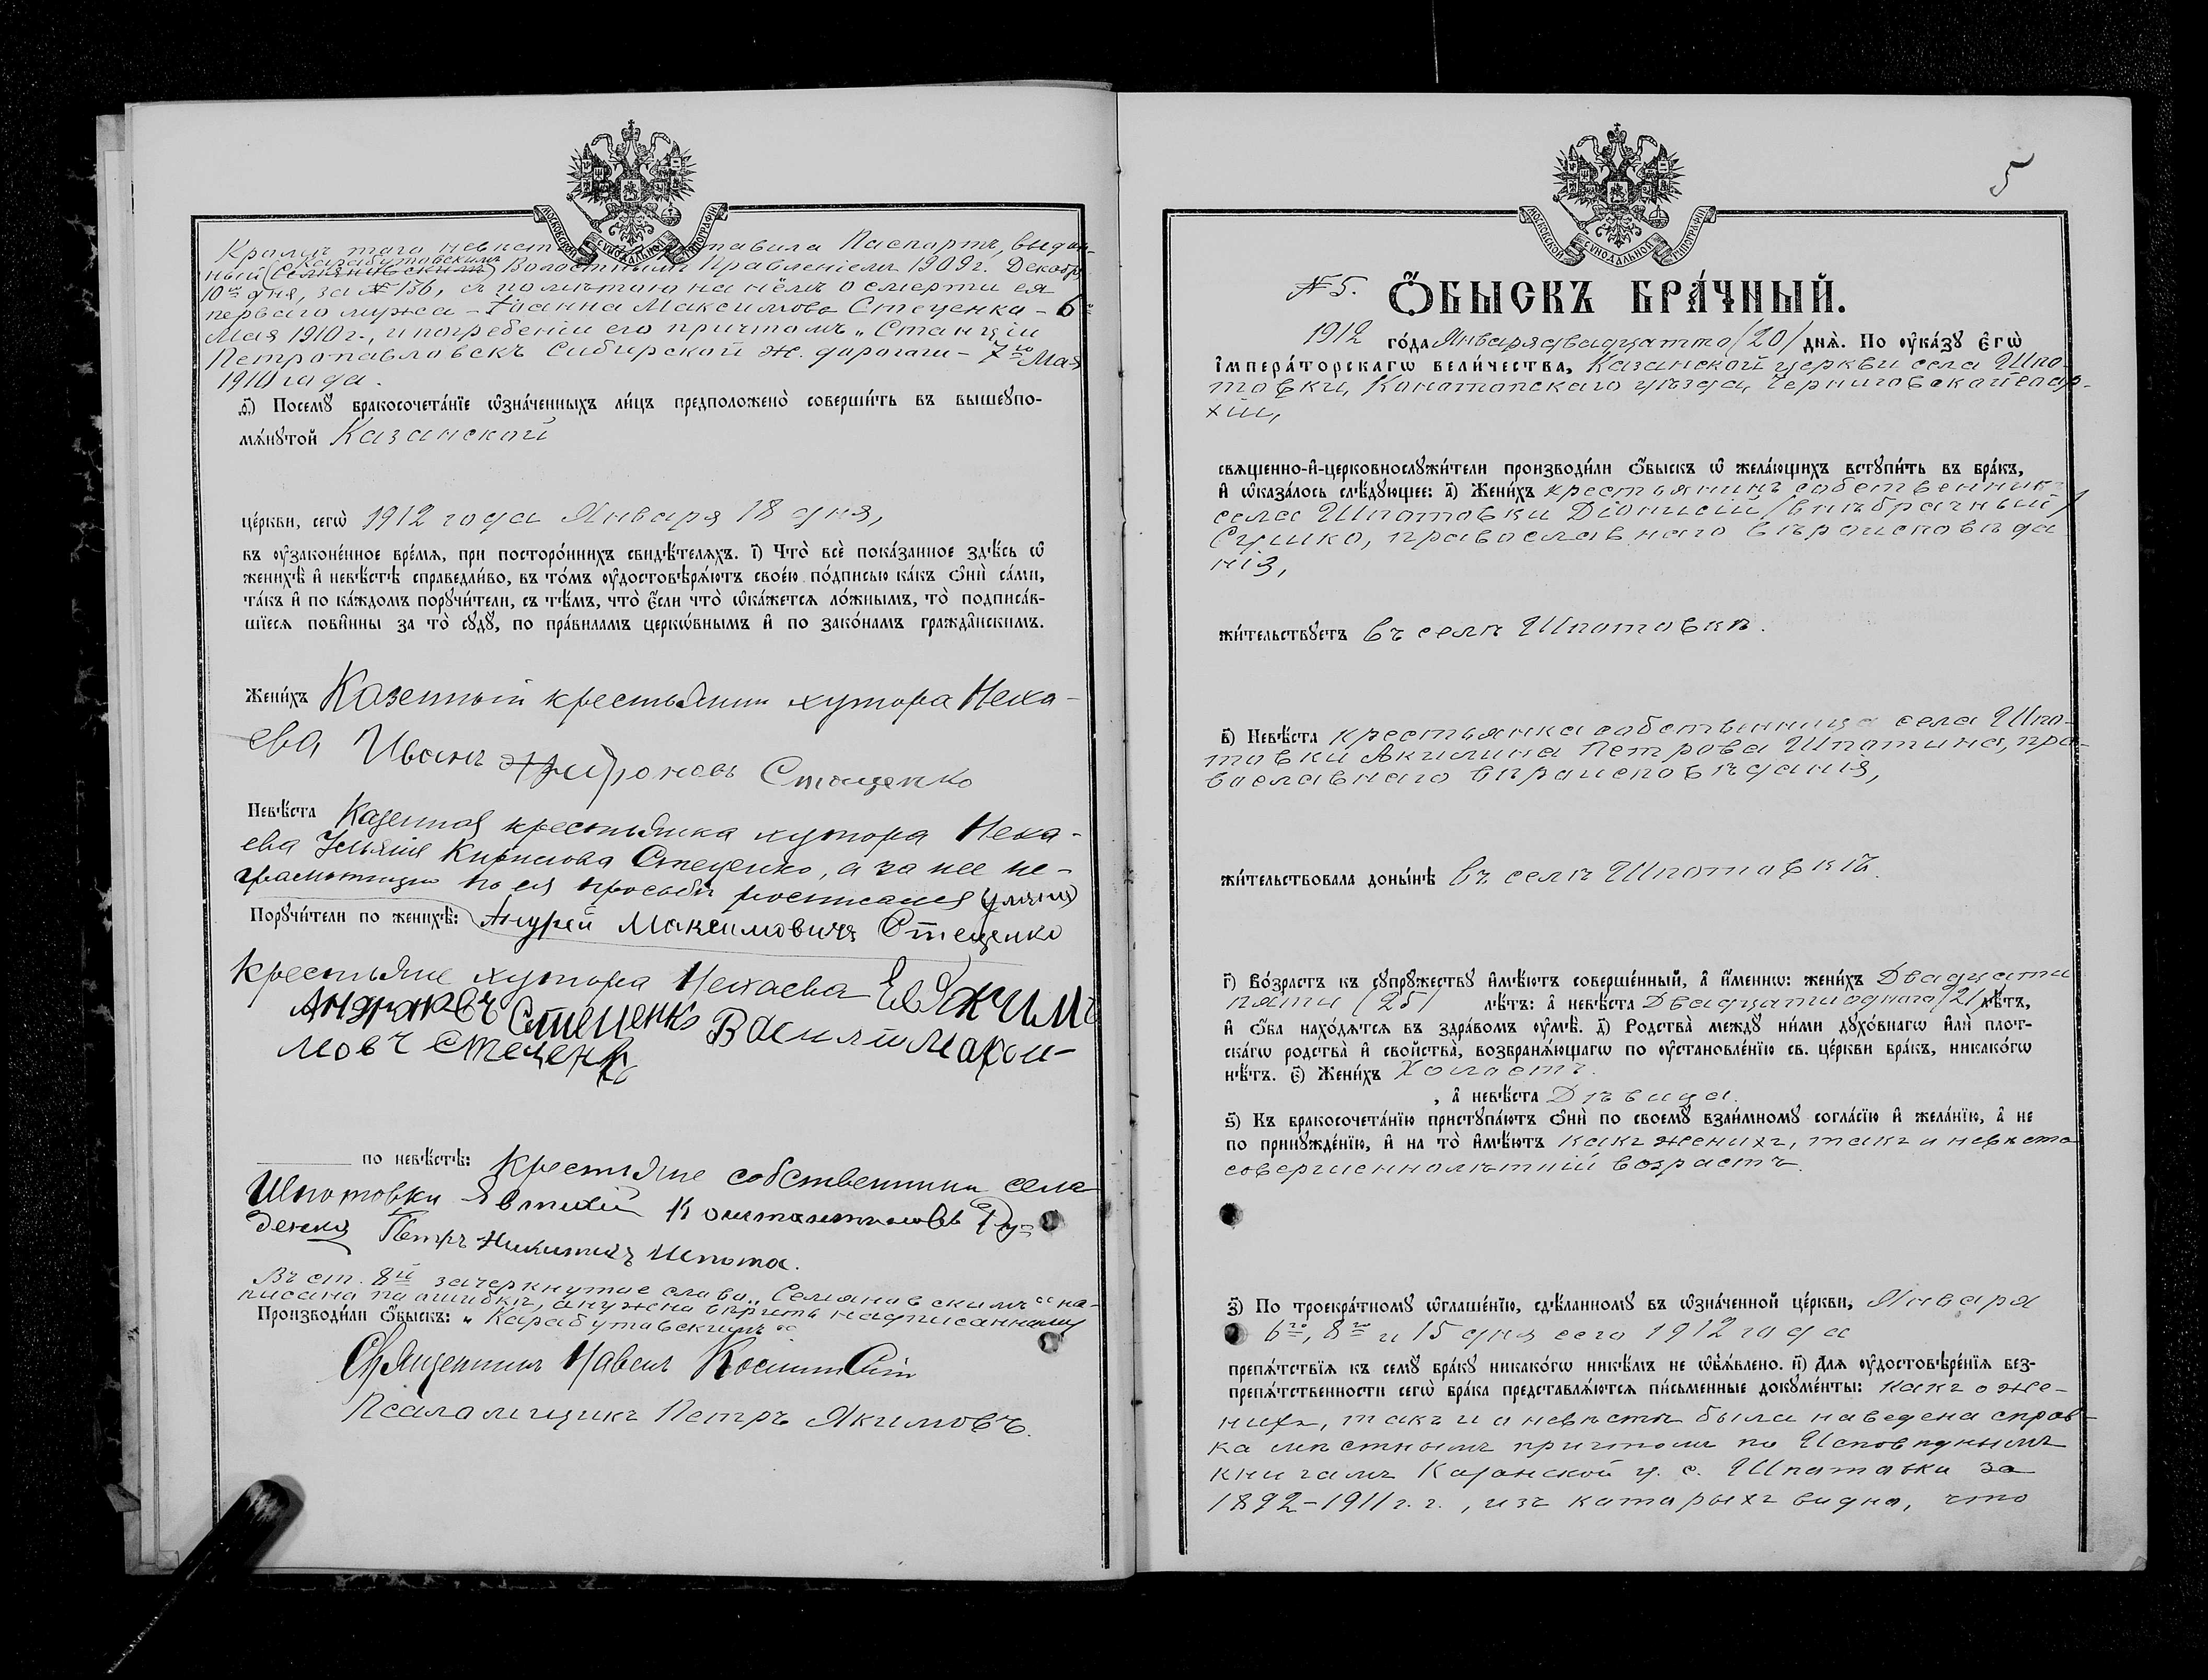 МОСКОВСКОЙ СѴНОДАЛЬНОЙ ТИПОГРАФІИ
Кромѣ того невѣст тавила Паспортъ, выдан-
Карабутовскимъ
ный (Семяновскимъ) Волостнымъ Правленіемъ 1909 г. Декабр
10го дня, за № 156, съ помѣтаю на нёмъ о смерти ея
перваго мужа – Іоанна Максимова Стеценка – 6го
Мая 1910 г., и погребеніи его причтомъ „Станціи
Петропавловскъ Сибирской ж. дороги – 7го Мая
1910 года.
д҃і) Посемꙋ̀ бракосочета́нїе ѡ҆зна́ченныхъ ли́цъ предположено̀ соверши́ть въ вышеꙋпо-
мѧ́нꙋтой Казанской
це́ркви, сегѡ̀ 1912 года Января 18 дня,
въ ᲂу҆законе́нное вре́мѧ, при посторо́ннихъ свидѣ́телѧхъ. і҃) Что̀ всѐ пока́занное здѣ́сь ѡ҆
женихѣ̀ и҆ невѣ́стѣ справедли́во, въ то́мъ ᲂу҆достовѣрѧ́ютъ свое́ю по́дписью ка́къ ѻ҆нѝ са́ми,
та́къ и҆ по ка́ждомъ порꙋчи́тели, съ тѣ́мъ, что̀ є҆́сли что̀ ѡ҆ка́жетсѧ ло́жнымъ, то̀ подписа́в-
шїесѧ пови́нны за то̀ сꙋдꙋ̀, по пра́виламъ церко́внымъ и҆ по зако́намъ гражда́нскимъ.
Жени́хъ Казенный крестьянин хутора Неха-
ева Иванъ Стеценко
Невѣ́ста Казенная крестьянка хутора Неха-
ева Ульяна Кирилова Стеценко, а за нее не-
грамотную по ея просьбѣ росписался
Порꙋчи́тели по женихѣ̀: Андрей Максимовичъ Стеценко
Крестьяне хутора Нехаева Евдакимъ
Андрѣевъ Стеценко Василій Макси-
мовъ Стеценко
по невѣ́стѣ: Крестьяне собственники села
Шпотовки Евтихій Константиновъ Ру-
денко Петръ Никитинъ Шпота.
Въ ст. 8й зачеркнутое слово „Семяновскимъ“ на-
писано по ошибкѣ, а нужно вѣрить надписанному
Производи́ли ѻ҆́быскъ: „Карабутовскимъ“
Священникъ Павелъ
Псаломщикъ Петръ Якимовъ.
5
МОСКОВСКОЙ СѴНОДАЛЬНОЙ ТИПОГРАФІИ
№ 5. Ѻ҆БЫСКЪ БРА́ЧНЫЙ.
1912 го́да Января двадцатто /20/ днѧ̀. По ᲂу҆ка́зꙋ Є҆гѡ̀
І҆мпера́торскагѡ вели́чества, Казанской церкви села Шпо-
товки, Конотопскаго уѣзда, Черниговской епар-
хіи,
свѧще́нно-и҆-церковнослꙋжи́тели производи́ли ѻ҆́быскъ ѡ҆ жела́ющихъ встꙋпи́ть въ бра́къ,
и҆ ѡ҆каза́лось слѣ́дꙋющее: а҃) Жени́хъ крестьянинъ собственникъ
села Шпотовки Діонисій /внѣбрачный/
Сушко, православнаго вѣроисповѣда
нія,
жи́тельствꙋетъ въ селѣ Шпотовкѣ.
в҃) Невѣ́ста крестьянка собственница села Шпо-
товки Акилина Петрова Шпотина, пра-
вославнаго вѣроисповѣданія,
жи́тельствовала доны́нѣ въ селѣ Шпотовкѣ.
г҃) Во́зрастъ къ сꙋпрꙋ́жествꙋ и҆мѣ́ютъ соверше́нный, а҆ и҆́меннѡ: жени́хъ Двадцати
пяти /25/ лѣ́тъ: а҆ невѣ́ста Двадцати одного /21/ лѣ́тъ,
и҆ ѻ҆́ба нахо́дѧтсѧ въ здра́вомъ ᲂу҆мѣ̀. д҃) Родства̀ междꙋ̀ ни́ми дꙋхо́внагѡ и҆лѝ плот-
ска́гѡ родства̀ и҆ сво́йства̀, возбранѧ́ющагѡ по ᲂу҆становле́нїю св. це́ркви бра́къ, никако́гѡ
нѣ́тъ. є҃) Жени́хъ Холостъ.
, а҆ невѣ́ста Дѣвица.
ѕ҃) Къ бракосочета́нїю пристꙋпа́ютъ ѻ҆нѝ по своемꙋ̀ взаи́мномꙋ согла́сїю и҆ жела́нїю, а҆ не
по принꙋжде́нїю, и҆ на то̀ и҆мѣ́ютъ какъ женихъ, такъ и невѣста
совершеннолѣтній возрастъ.
з҃) По троекра́тномꙋ ѡ҆глаше́нїю, сдѣ́ланномꙋ въ ѡ҆зна́ченной це́ркви, Января
6го, 8го и 15 дня сего 1912 года
препѧ́тствїѧ къ семꙋ̀ бра́кꙋ никако́гѡ никѣ́мъ не ѡ҆б̾ѧ́влено. и҃) Для ᲂу҆достовѣре́нїѧ без-
препѧ́тственности сегѡ̀ бра́ка представлѧ́ютсѧ пи́сьменные докꙋме́нты: какъ о же-
нихѣ, такъ и о невѣстѣ была наведена справ-
ка мѣстнымъ причтомъ по Исповѣднымъ
книгамъ Казанской ц. с. Шпотовки за
1892–1911 г.г., изъ которыхъ видно, что